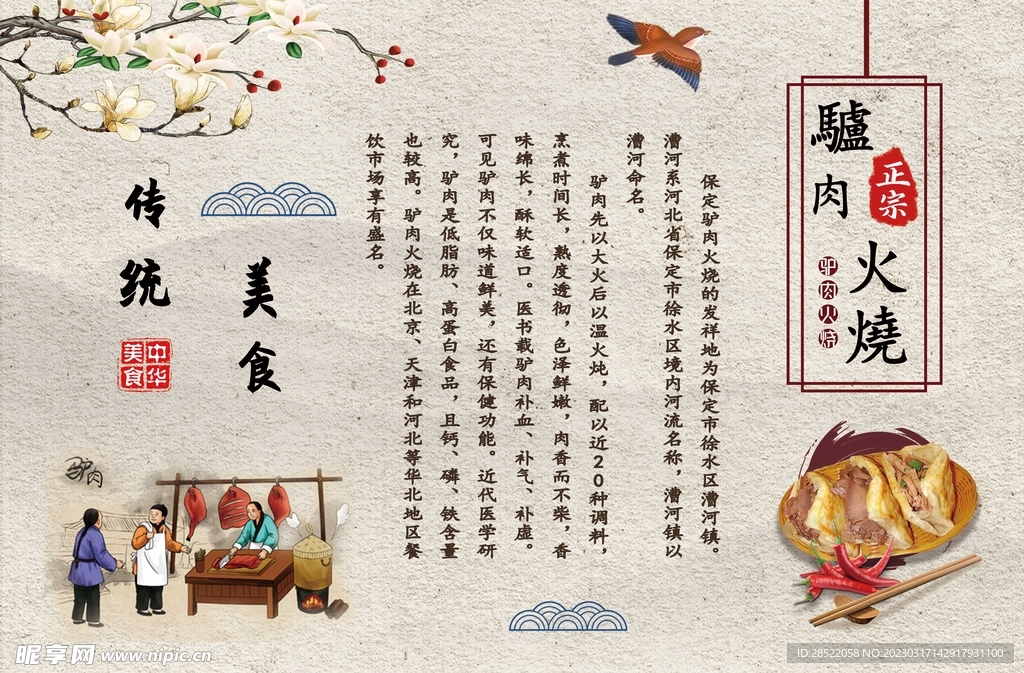 驢肉
正宗
火燒
驴肉火烧
保定驴肉火烧的发祥地为保定市徐水区漕河镇。
漕河系河北省保定市徐水区境内河流名称，漕河镇以
漕河命名。
驴肉先以大火后以温火炖，配以近20种调料，
烹煮时间长，熟度透彻，色泽鲜嫩，肉香而不柴，香
味绵长，酥软适口。医书载驴肉补血、补气、补虚。
可见驴肉不仅味道鲜美，还有保健功能。近代医学研
究，驴肉是低脂肪、高蛋白食品，且钙、磷、铁含量
也较高。驴肉火烧在北京、天津和河北等华北地区餐
饮市场享有盛名。
美食
传统
中华
美食
驴肉
昵享网 www.nipic.cn
ID:28522058 NO:20230317142917931100